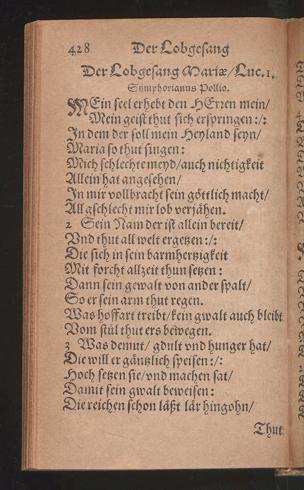 428 Der Lobgesang
Der Lobgesang Mariæ/Luc.1.
Symphorianus Pollio.
MEin seel erhebt den HErzen mein/
Mein geist thut sich erspringen:/:
In dem der soll mein Heyland seyn/
Maria so thut singen:
Mich schlechte meyd/auch nichtigkeit
Allein hat angesehen/
In mir vollbracht sein göttlich macht/
All gschlecht mir lob verjähen.
2 Sein Nam der ist allein bereit/
Vnd thut all welt ergetzen:/:
Die sich in sein barmhertzigkeit
Mit forcht allzeit thun setzen:
Dann sein gewalt von ander spalt/
So er sein arm thut regen.
Was hoffart treibt/kein gwalt auch bleibt
Vom stül thut ers bewegen.
3 Was demut/ gdult vnd hunger hat/
Die will er gäntzlich speisen:/:
Hoch setzen sie/vnd machen sat/
Damit sein gwalt beweisen:
Die reichen schon läßt lär hingohn/
Thut